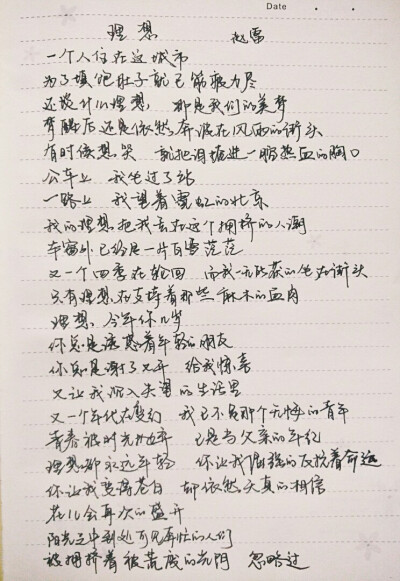 Date
理想 赵雷
一个人住在这城市
为了填饱肚子就已筋疲力尽
还谈什么理想, 那是我们的美梦
梦醒后还是依然奔波在风雨的街头
有时侯想哭 就把泪进一腔热血的胸口
公车上 我过了站
一路上 我望着霓虹的北京
我的理想把我丢在这个拥挤的人潮
车窗外已经是一片白雪茫茫
又一个四季在轮回 而我一无所获的坐在街头
只有理想在支撑着那些麻木的血肉
理想, 今年你几岁
你总是诱惑着年轻的朋友
你总是谢了又开 给我惊喜
又让我陷入失望的生活里
又一个年代在变幻 我已不是那个无悔的青年
青春被时光抛弃 已是当父亲的年纪
理想都永远年轻 你让我倔强的反抗着命运
你让我变得苍白 却依然天真的相信
花儿会再次的盛开
阳光之中到处可见奔忙的人们
被拥挤着被荒废的光阴 忽略过